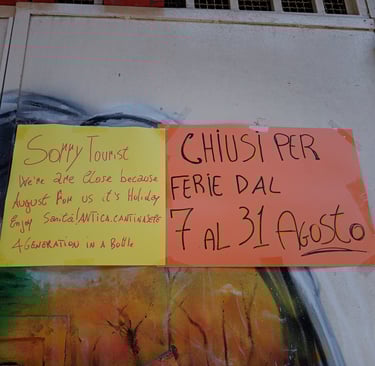 Sorry Tourist
We're are close because
August for us it's Holiday
Enjoy Sanità! ANTICA.CANTINA
A GENERATION IN A Bottle
CHIUSI PER
FERIE DAL
7 AL 31 AGOSTO